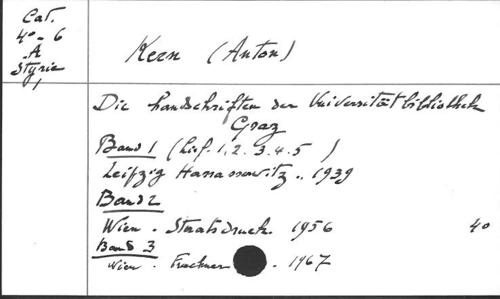 Cat.
4°-6
A
Styrie
Kern (Anton)
Die handschriften der Universitätbibliothek
Graz
Band 1 (Lief. 1. 2. 3. 4. 5 )
Leipzig Harrassowitz .. 1939
Band 2
Wien . Staatsdruck. 1956 40
Band 3
Wien . . 1967